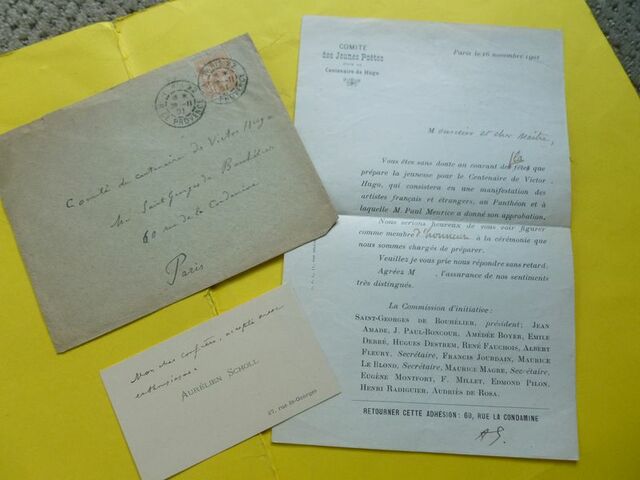 Comité du centenaire de Victor Hugo
Mr Saint Georges de Bouhélier
60 rue de la Condamine
Paris
PROVENCE
Mon cher confrère, accepté avec
enthousiasme.
AURÉLIEN SCHOLL
rue St-Georges
COMITÉ
des Jeunes Poètes
POUR LE
Centenaire de Hugo
Paris le 16 novembre 1901
Monsieur et cher Maître,
Vous êtes sans doute au courant des fêtes que
prépare la jeunesse pour le Centenaire de Victor
Hugo, qui consistera en une manifestation des
artistes français et étrangers, au Panthéon et à
laquelle M. Paul Meurice a donné son approbation.
Nous serions heureux de vous voir figurer
comme membre d'honneur à la cérémonie que
nous sommes chargés de préparer.
Veuillez je vous prie nous répondre sans retard.
Agréez M , l'assurance de nos sentiments
très distingués.
La Commission d'initiative :
SAINT-GEORGES DE BOUHÉLIER, président; JEAN
AMADE, J. PAUL-BONCOUR, AMÉDÉE BOYER, EMILE
DERRÉ, HUGUES DESTREM, RENÉ FAUCHOIS, ALBERT
FLEURY, Secrétaire, FRANCIS JOURDAIN, MAURICE
LE BLOND, Secrétaire, MAURICE MAGRE, Secrétaire,
EUGÈNE MONTFORT, F. MILLET, EDMOND PILON,
HENRI RADIGUIER, AUDRIÈS DE ROSA.
RETOURNER CETTE ADHÉSION: 60, RUE LA CONDAMINE